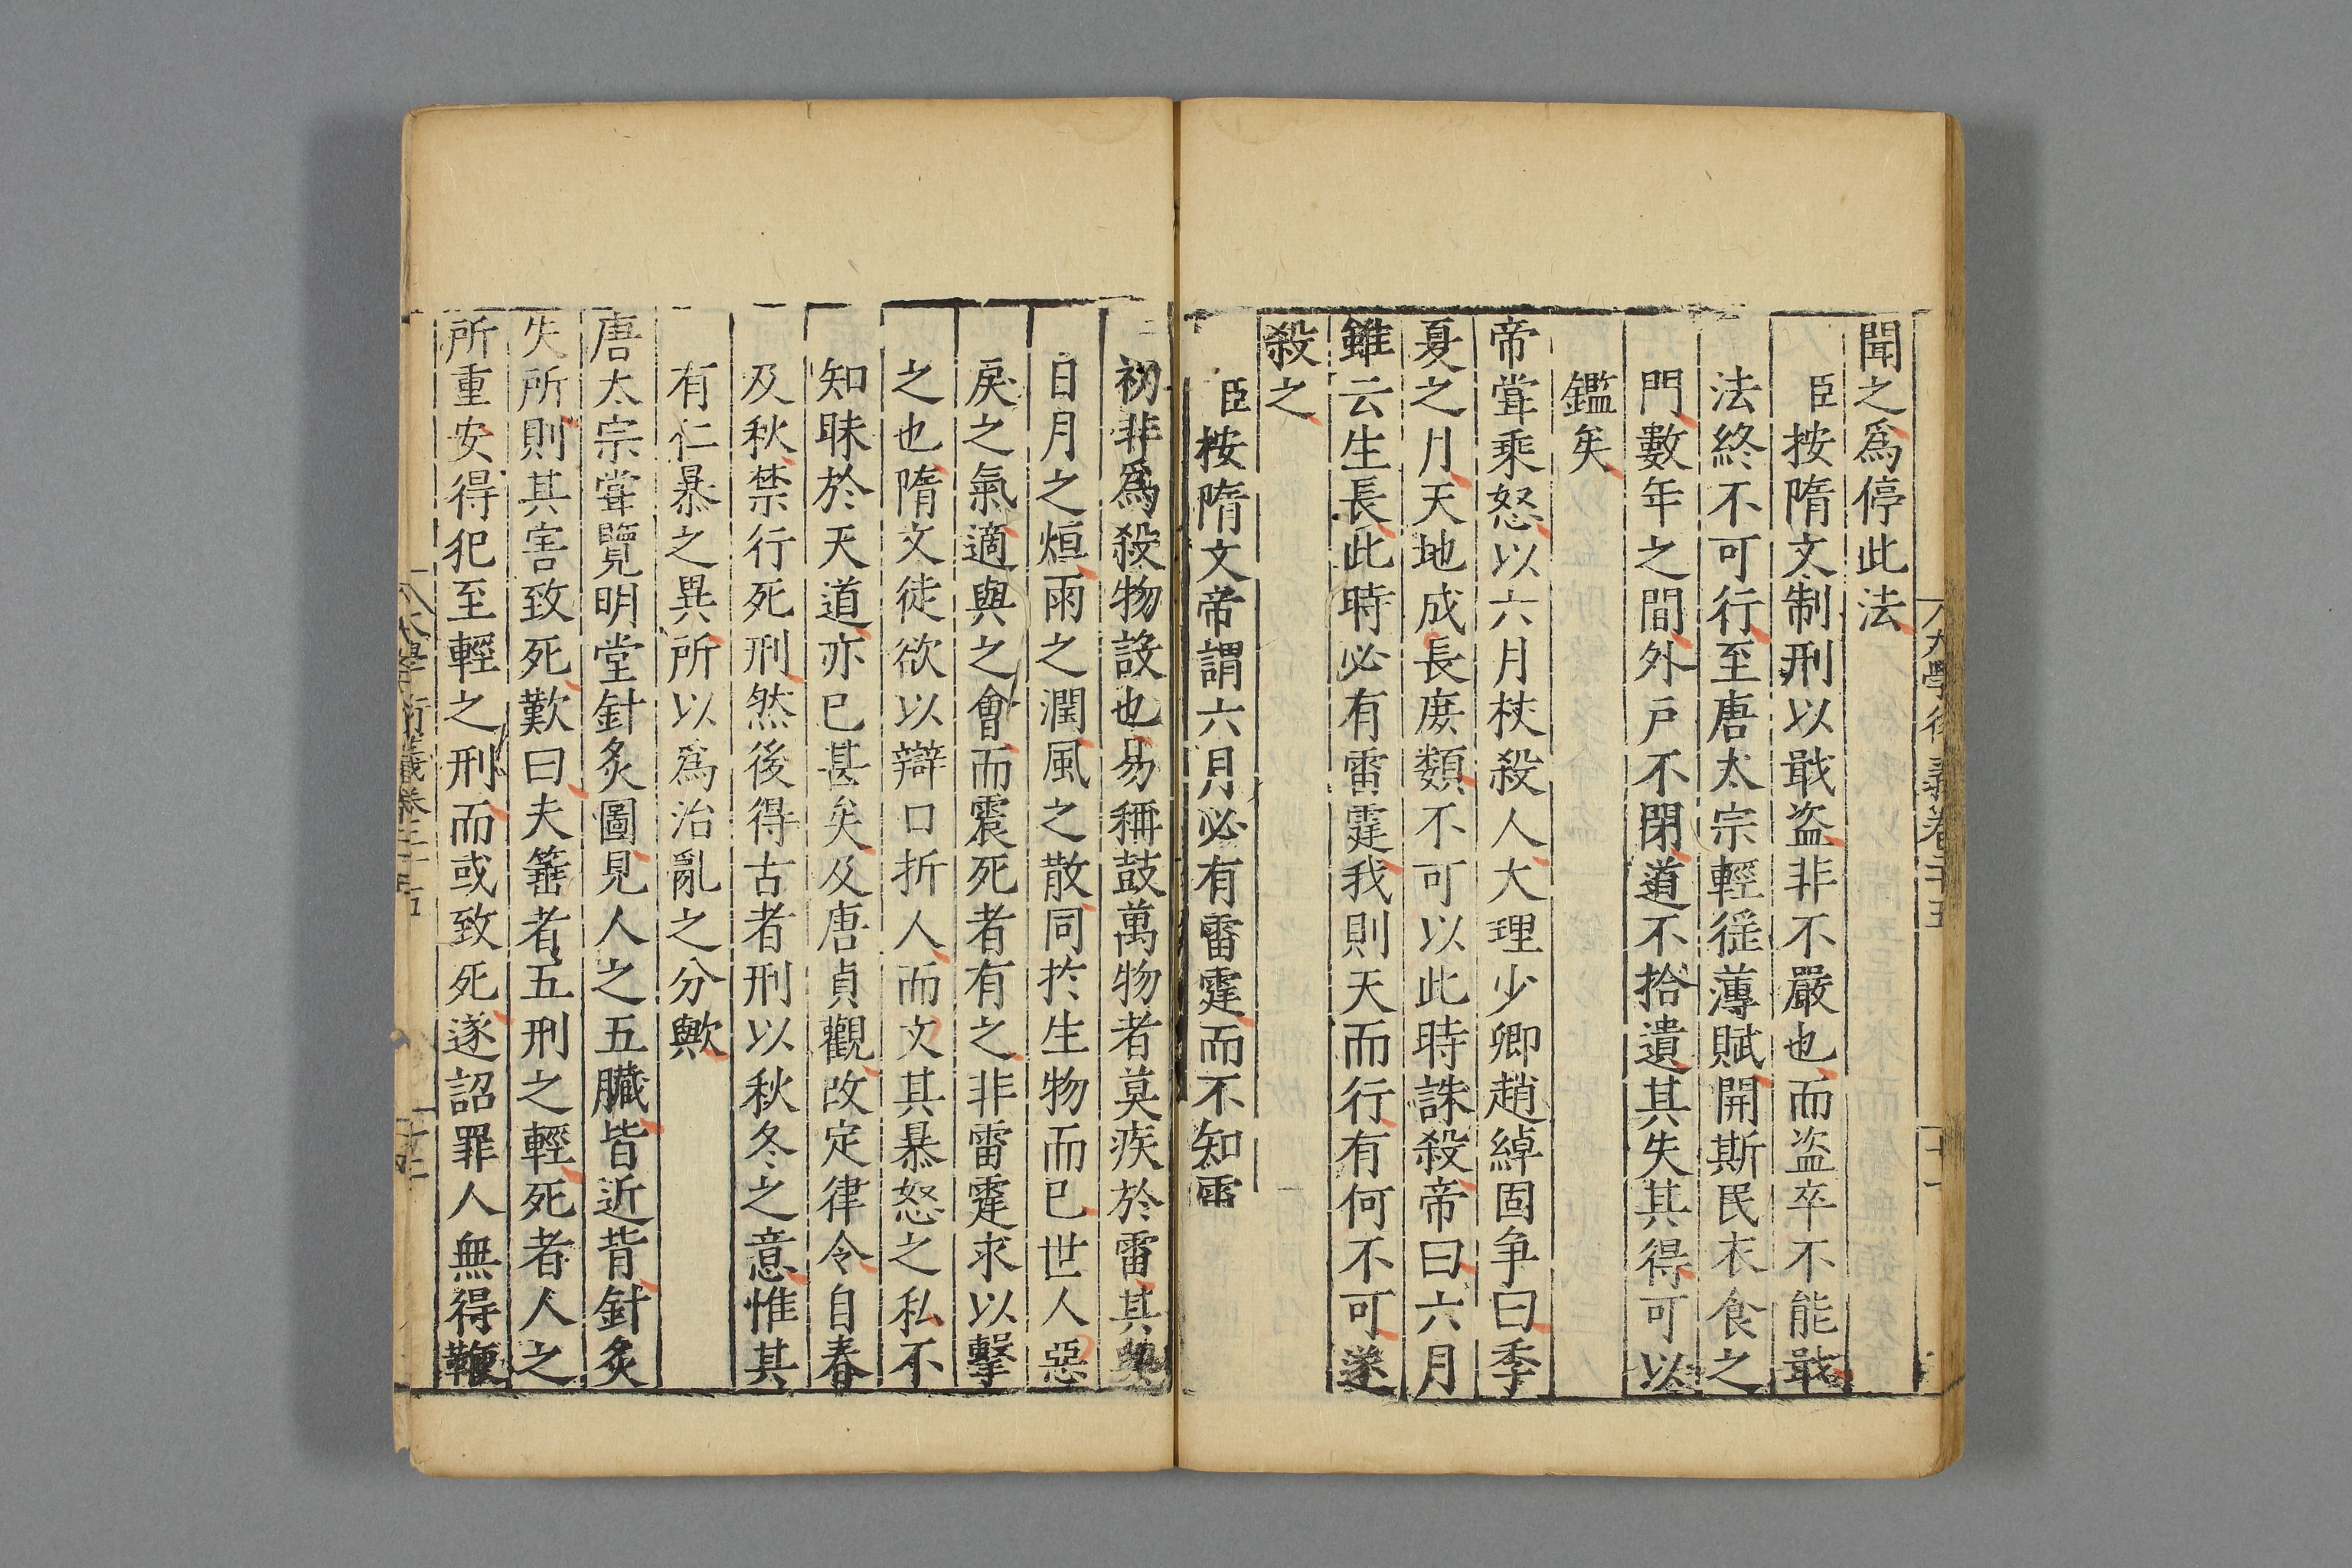 聞之爲停此法
臣按隋文制刑以戢盗非不嚴也而盗卒不能戢
法終不可行至唐太宗輕徭薄賦開斯民衣食之
門數年之間外戸不閉道不拾遺其失其得可以
鑑矣
帝甞乘怒以六月杖殺人大理少卿趙綽固争曰季
夏之月天地成長庻類不可以此時誅殺帝曰六月
雖云生長此時必有雷霆我則天而行有何不可遂
殺之
臣按隋文帝謂六月必有雷霆而不知雷
初非爲殺物設也易稱鼓萬物者莫疾於雷其與
日月之烜雨之潤風之散同扵生物而已世人惡
戾之氣適與之會而震死者有之非雷霆求以擊
之也隋文徒欲以辯口折人而文其暴怒之私不
知昧於天道亦已甚矣及唐貞觀改定律令自春
及秋禁行死刑然後得古者刑以秋冬之意惟其
有仁暴之異所以爲治亂之分歟
唐太宗甞覽明堂針炙圖見人之五臓皆近背針炙
失所則其害致死歎曰夫箠者五刑之輕死者人之
所重安得犯至輕之刑而或致死遂詔罪人無得鞭
大學衍義卷二十五